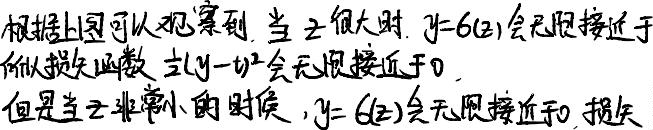 根据上图可以观察到,当z很大时.y=6(z)会无限接近于
所以损失函数 ½(y-t)²会无限接近于0.
但是当z非常小的时候,y=6(z)会无限接近于0,损失